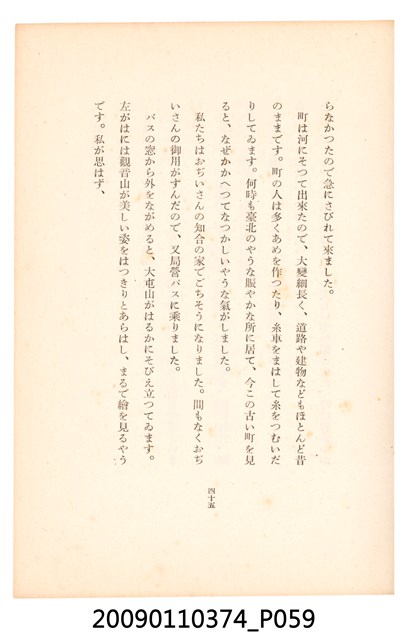 らなかつたので急にさびれて來ました。
町は河にそつて出來たので、大變細長く、道路や建物などもほとんど昔
のままです。町の人は多くあめを作つたり、糸車をまはして糸をつむいだ
りしてゐます。何時も臺北のやうな賑やかな所に居て、今この古い町を見
ると、なぜかかへつてなつかしいやうな氣がしました。
私たちはおぢいさんの知合の家でごちそうになりました。間もなくおぢ
いさんの御用がすんだので、又局營バスに乘りました。
バスの窓から外をながめると、大屯山がはるかにそびえ立つてゐます。
左がはには觀音山が美しい姿をはつきりとあらはし、まるで繪を見るやう
です。私が思はず、
四十五
20090110374_P059